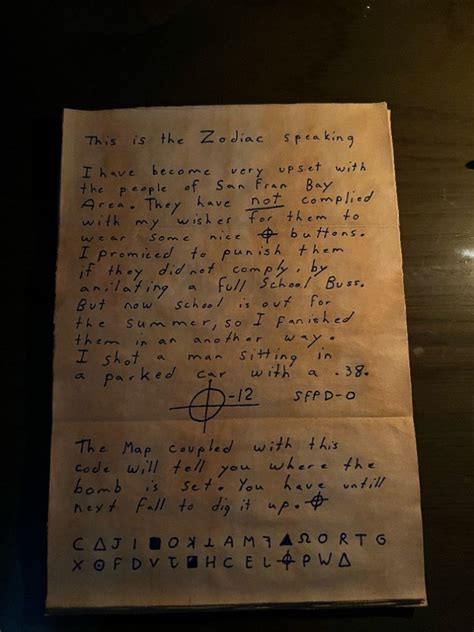 This is the Zodiac speaking
I have become very upset with
the people of San Fran Bay
Area. They have not complied
with my wishes for them to
wear some nice ⌖ buttons.
I promiced to punish them
if they did not comply, by
anilating a full School Buss.
But now school is out for
the summer, so I fanished
them in an another way.
I shot a man sitting in
a parked car with a .38.
⌖-12 SFPD-0
The Map coupled with this
code will tell you where the
bomb is set. You have untill
next Fall to dig it up. ⌖
C Δ J I ■ O ꓘ ⅄ A M ꟻ ▲ Ω O R T G
X ⊙ F D V Ʇ ■ H C E L ⌖ P W Δ